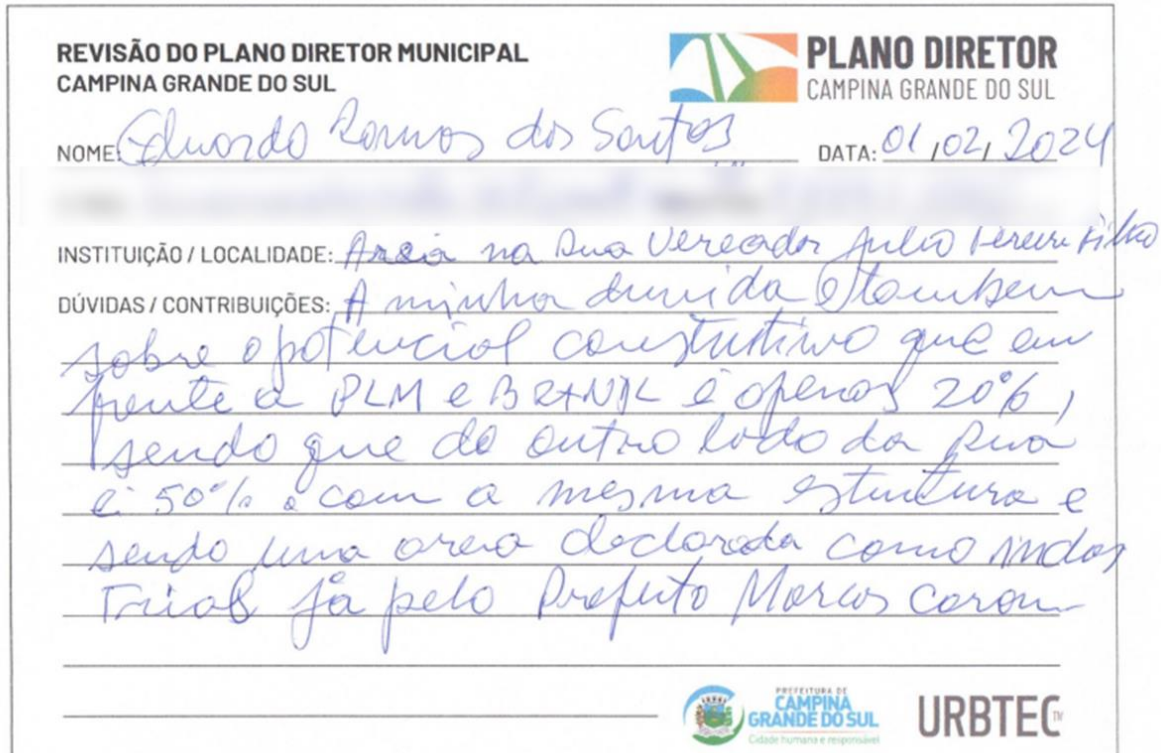 REVISÃO DO PLANO DIRETOR MUNICIPAL
CAMPINA GRANDE DO SUL
PLANO DIRETOR
CAMPINA GRANDE DO SUL
NOME: Eduardo Ramos dos Santos DATA: 01/02/2024
INSTITUIÇÃO / LOCALIDADE: Area na Rua Vereador Julio Pereira Filho
DÚVIDAS / CONTRIBUIÇÕES: A minha duvida tambem
sobre o potencial construtivo que em
frente a PLM e é apenas 20%,
sendo que do outro lado da Rua
é 50% com a mesma estrutura e
sendo uma area declarada como indus
Trial já pelo Prefeito Marcos
PREFEITURA DE
CAMPINA
GRANDE DO SUL
Cidade humana e responsável
URBTEC TM